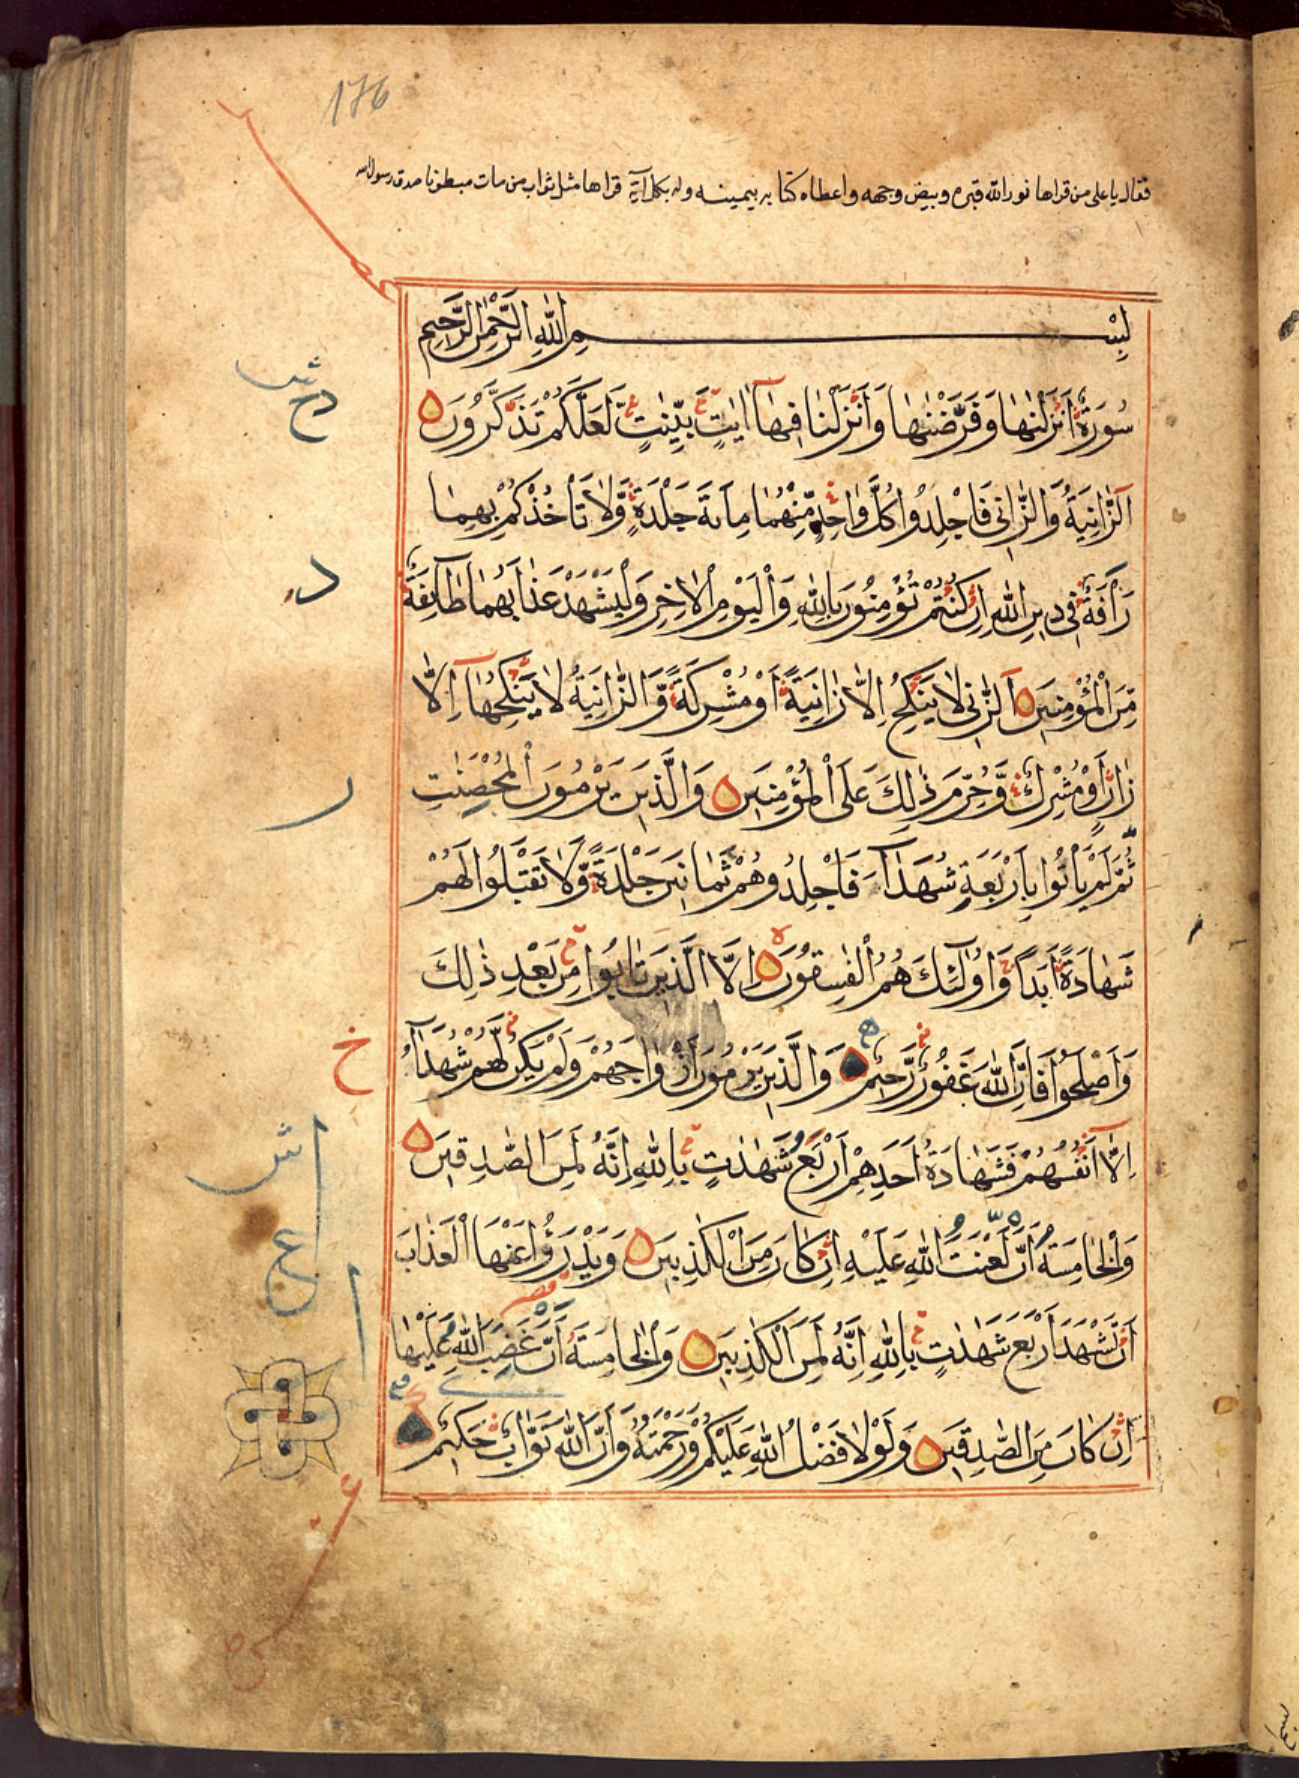 176
فقال يا على من قراها نور الله قبره وبيض وجهه واعطاه كتابه بيمينه وله بكل آية قراها مثل ثواب من مات مبطونا صدق رسول الله
بِسْمِ اللهِ الرَّحْمٰنِ الرَّحِيمِ
سُورَةٌ اَنْزَلْنٰهَا وَفَرَضْنٰهَا وَاَنْزَلْنَا فِيهَآ اٰيٰتٍ بَيِّنٰتٍ لَعَلَّكُمْ تَذَكَّرُونَ
اَلزَّانِيَةُ وَالزَّانِى فَاجْلِدُوا كُلَّ وَاحِدٍ مِنْهُمَا مِائَةَ جَلْدَةٍ وَّلَا تَأْخُذْكُمْ بِهِمَا
رَأْفَةٌ فِى دِينِ اللهِ اِنْ كُنْتُمْ تُؤْمِنُونَ بِاللهِ وَالْيَوْمِ الْاٰخِرِ وَلْيَشْهَدْ عَذَابَهُمَا طَآئِفَةٌ
مِّنَ الْمُؤْمِنِينَ اَلزَّانِى لَا يَنْكِحُ اِلَّا زَانِيَةً اَوْ مُشْرِكَةً وَّالزَّانِيَةُ لَا يَنْكِحُهَآ اِلَّا
زَانٍ اَوْ مُشْرِكٌ وَّحُرِّمَ ذٰلِكَ عَلَى الْمُؤْمِنِينَ وَالَّذِينَ يَرْمُونَ الْمُحْصَنٰتِ
ثُمَّ لَمْ يَأْتُوا بِاَرْبَعَةِ شُهَدَآءَ فَاجْلِدُوهُمْ ثَمَانِينَ جَلْدَةً وَّلَا تَقْبَلُوا لَهُمْ
شَهَادَةً اَبَدًا وَاُولٰٓئِكَ هُمُ الْفٰسِقُونَ ه اِلَّا الَّذِينَ تَابُوا مِنْ بَعْدِ ذٰلِكَ
وَاَصْلَحُوا فَاِنَّ اللهَ غَفُورٌ رَّحِيمٌ وَالَّذِينَ يَرْمُونَ اَزْوَاجَهُمْ وَلَمْ يَكُنْ لَّهُمْ شُهَدَآءُ
اِلَّآ اَنْفُسُهُمْ فَشَهَادَةُ اَحَدِهِمْ اَرْبَعُ شَهٰدٰتٍ بِاللهِ اِنَّهُ لَمِنَ الصّٰدِقِينَ
وَالْخَامِسَةُ اَنَّ لَعْنَتَ اللهِ عَلَيْهِ اِنْ كَانَ مِنَ الْكٰذِبِينَ وَيَدْرَؤُا عَنْهَا الْعَذَابَ
اَنْ تَشْهَدَ اَرْبَعَ شَهٰدٰتٍ بِاللهِ اِنَّهُ لَمِنَ الْكٰذِبِينَ وَالْخَامِسَةَ اَنَّ غَضَبَ اللهِ عَلَيْهَا
اِنْ كَانَ مِنَ الصّٰدِقِينَ وَلَوْلَا فَضْلُ اللهِ عَلَيْكُمْ وَرَحْمَتُهُ وَاَنَّ اللهَ تَوَّابٌ حَكِيمٌ
د
ر
خ
ش
ع